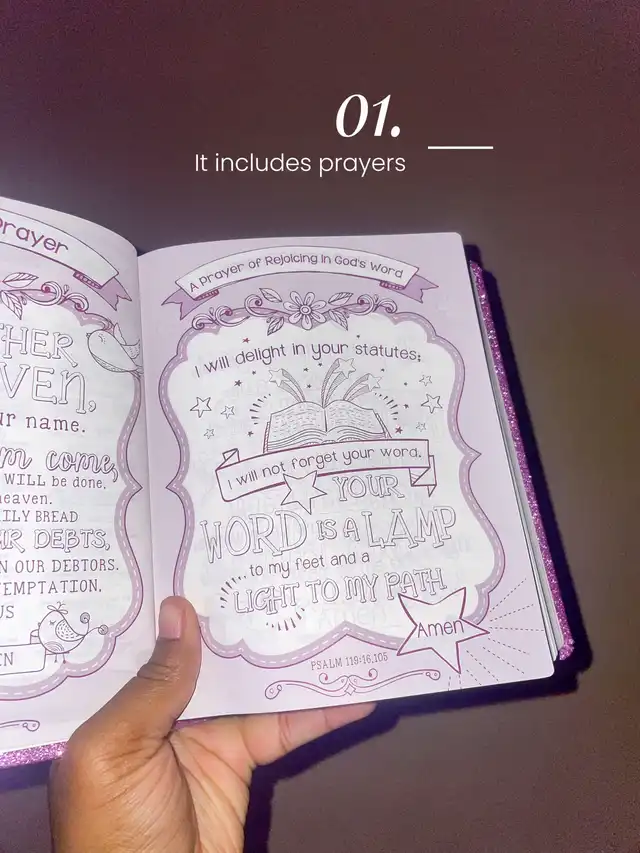 01.
It includes prayers
Prayer
HER
VEN,
ur name.
m come,
WILL be done,
heaven.
ILY BREAD
UR DEBTS,
N OUR DEBTORS.
TEMPTATION,
US
EN
A Prayer of Rejoicing in God's Word
I will delight in your statutes;
I will not forget your word.
YOUR
WORD IS A LAMP
to my feet and a
LIGHT TO MY PATH
Amen
PSALM 119:16,105